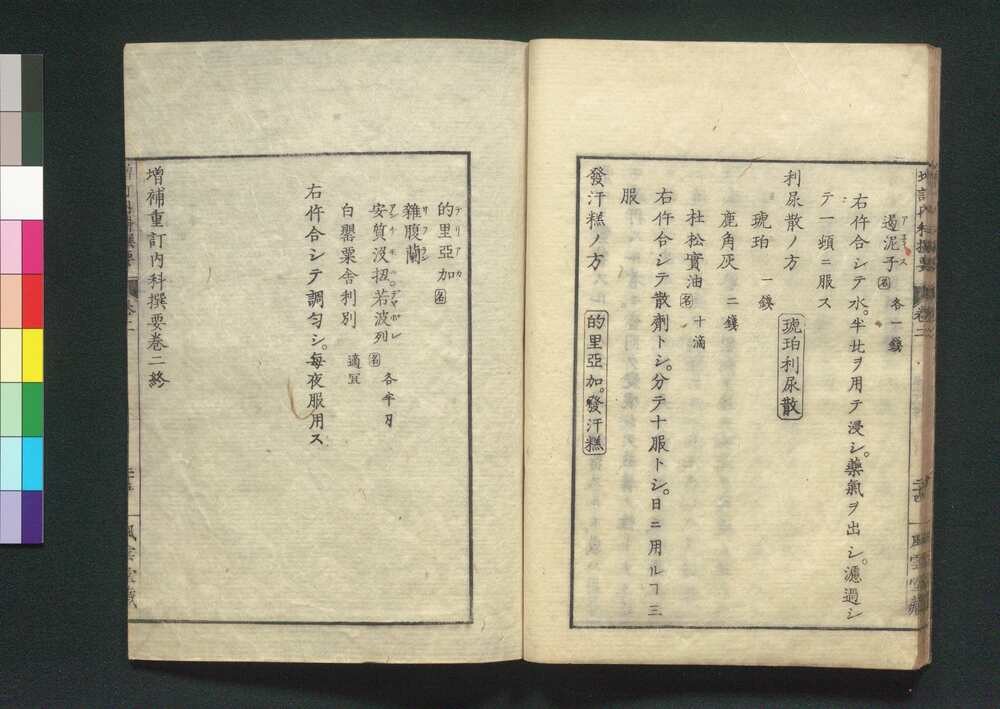 遏泥子 名 各一錢
アニス
右件合シテ水。半比ヲ用テ浸シ。藥氣ヲ出シ。濾過シ
テ一頓ニ服ス
利尿散ノ方 琥珀利尿散
琥珀 一錢
鹿角灰 二錢
杜松實油 名 十滴
右件合シテ散劑トシ。分テ十服トシ。日ニ用ルヿ三
服
發汗糕ノ方 的里亞加。發汗糕
的里亞加 名
テリアカ
雜腹蘭
サフラン
安質没扭。若波列 名 各半刄
アンチモ。デヤボレ
白罌粟舎利別 適宜
右件合シテ調匀シ。每夜服用ス
增補重訂内科撰要卷二終